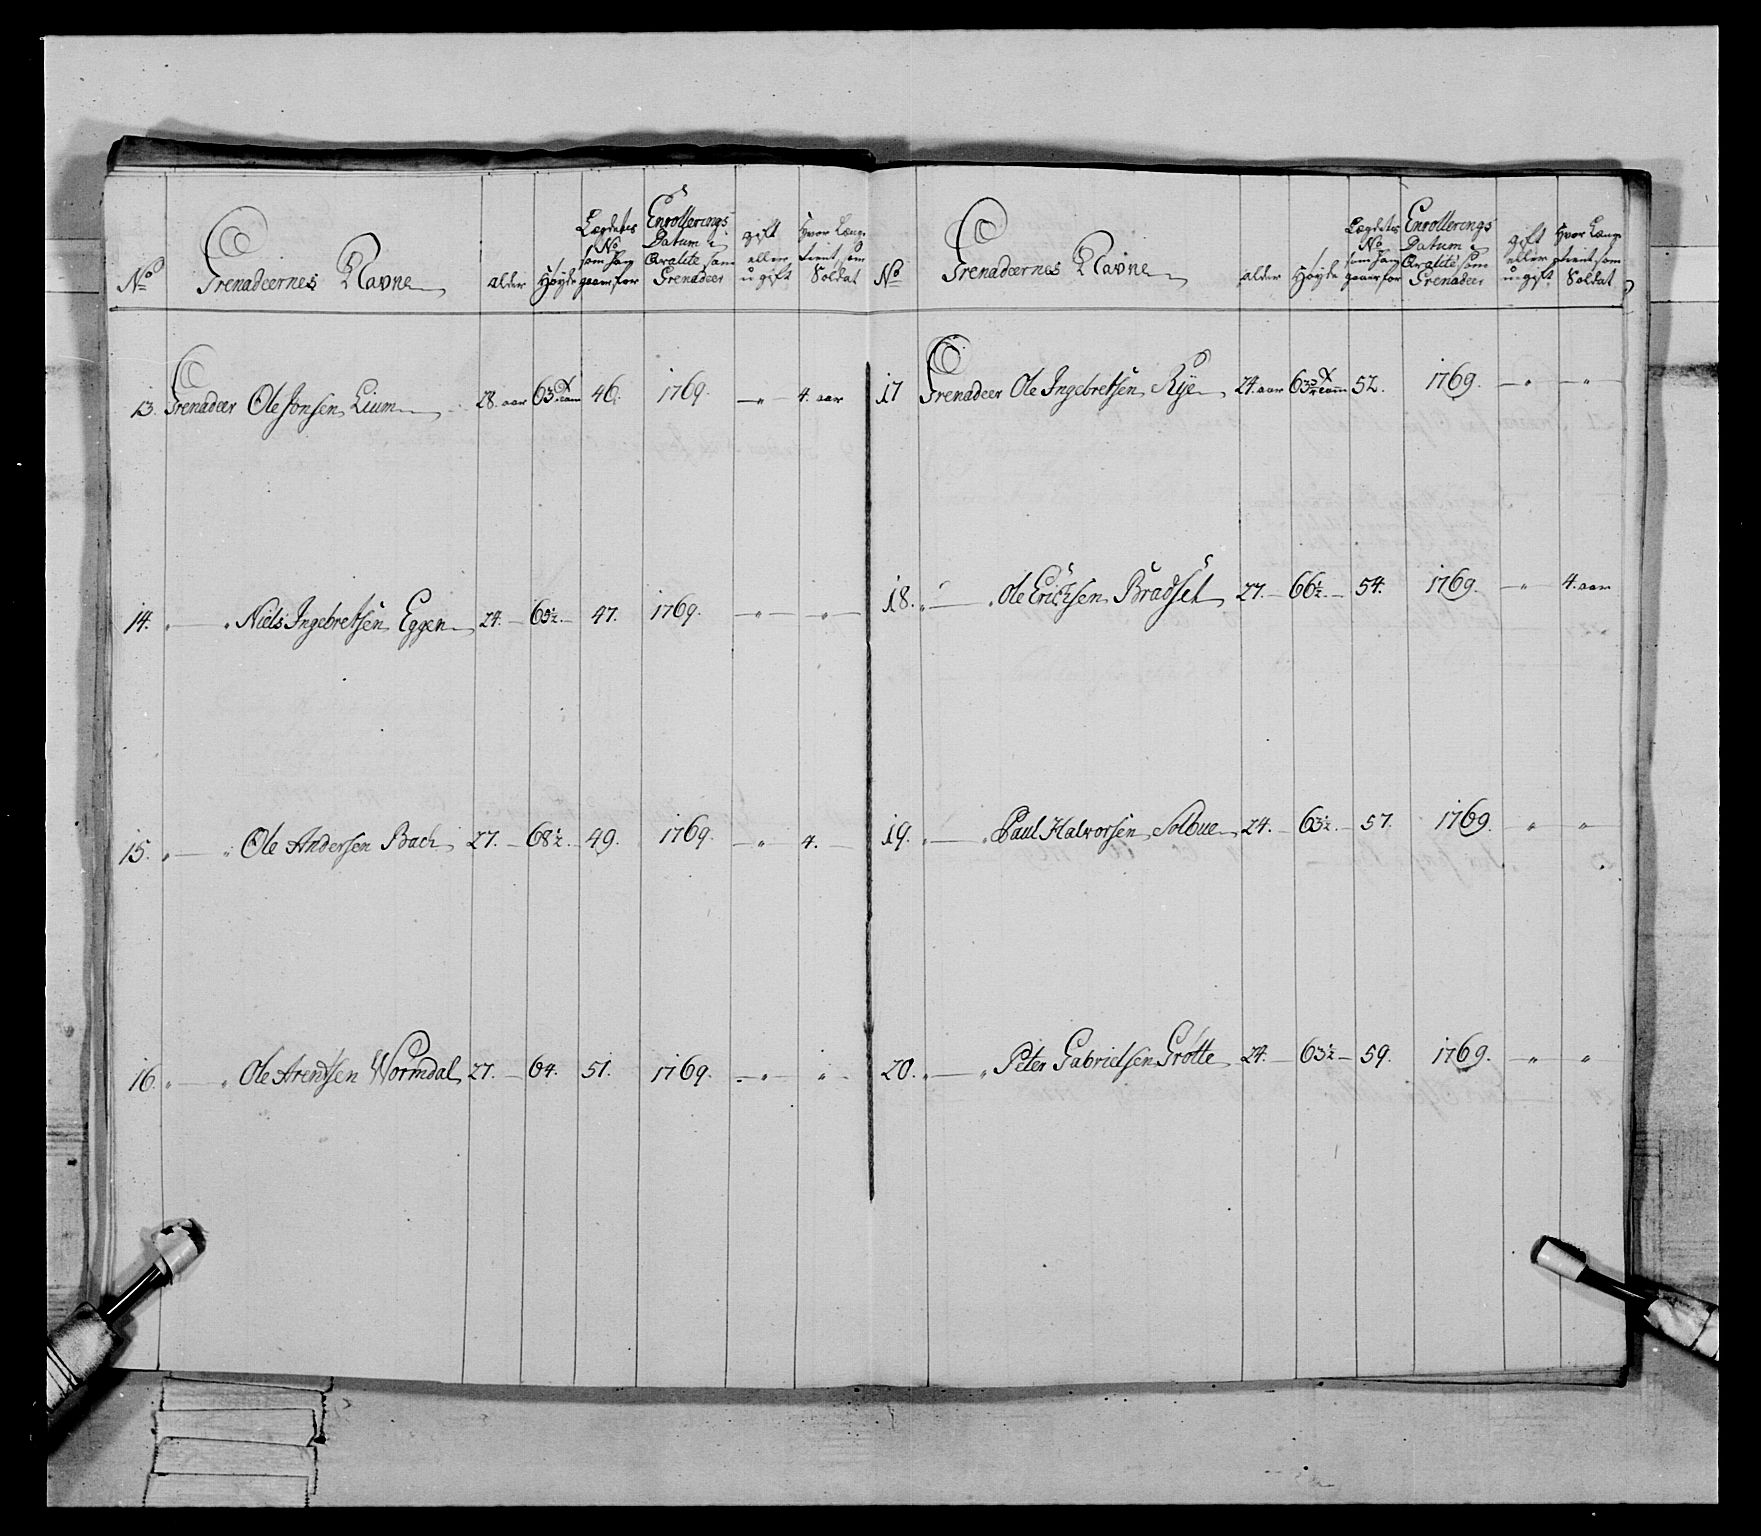 No Grenadeernes Navne alder Høyde Lægdets No som han gaar for Enrollerings Datum i Qvalité som Grenadeer gift eller ugift Hvor Længe tient som Soldat
13. Grenadeer Ole Jonsen Lium 28. aar 63 46. 1769. — „ — 4. aar
14. „ — „ Niels Ingebretsen Eggen 24. — 65½. — 47. 1769. — „ — „ —
15. „ — „ Ole Andersen Bach 27. — 68½. — 49. 1769. — „ — 4. —
16. „ — „ Ole Arentsen Wormdal 27. — 64. 51. 1769. — „ — „ —
No Grenadeernes Navne alder Høyde Lægdets No som han gaar for Enrollerings Datum i Qvalité som Grenadeer gift eller ugift Hvor Længe tient som Soldat
17 Grenadeer Ole Ingebretsen Rye 24. aar 63¾ 52. 1769. — „ — „ —
18. „ — „ Ole Erichsen Bradset 27. — 66½. — 54. 1769. — „ — 4. aar
19. „ — „ Paul Halvorsen Solbue 24. — 63½. — 57. 1769. „ „
20. „ — „ Peter Gabrielsen Grøtte 24. — 63½ — 59. 1769. — „ — „